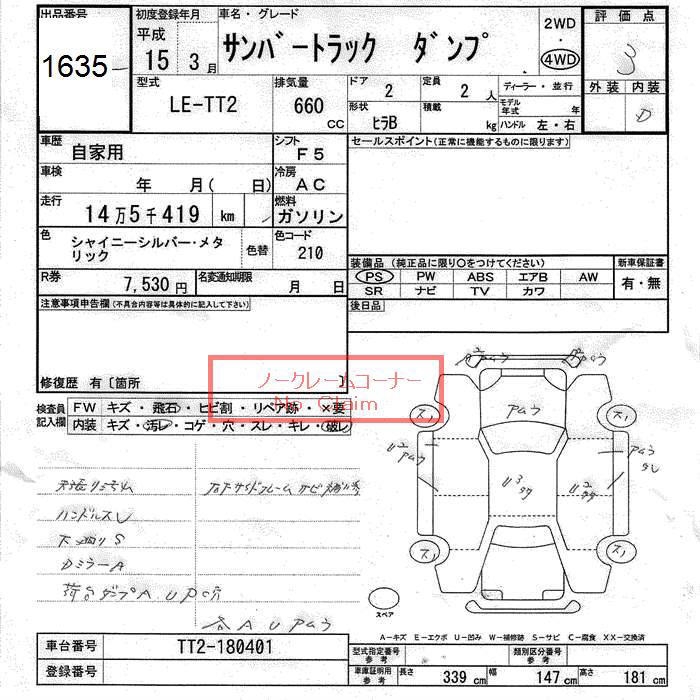 出品番号 初度登録年月 車名・グレード 2WD ・ 4WD 評価点
1635 平成 15年 3月 サンバートラック ダンプ 3
型式 LE-TT2 排気量 660 CC ドア 2 定員 2 人 ディーラー・並行 外装 内装
形状 ヒラB 積載 kg モデル年式 年 ハンドル 左・右 D
車歴 自家用 シフト F5 セールスポイント(正常に機能するものに限ります)
車検 年 月( 日) 冷房 AC
走行 14万5千419 km 燃料 ガソリン
色 シャイニーシルバー・メタリック 色替 色コード 210
装備品(純正品に限り○をつけてください) 新車保証書
PS PW ABS エアB AW 有・無
SR ナビ TV カワ
R券 7,530円 名変通知期限 月 日
後日品
注意事項申告欄(不具合内容等は具体的に記入して下さい)
修復歴 有〔箇所 〕
ノークレームコーナー
No Claim
検査員記入欄 FW キズ・飛石・ヒビ割・リペア跡・×要
内装 キズ・汚レ・コゲ・穴・スレ・キレ・破レ
ハンドルスレ
下廻りS
DミラーA
荷台ダンプA U P穴
各A U Pムラ
Pムラ
U3
U2
Pムラ
U2
スペア
A−キズ E−エクボ U−凹み W−補修跡 S−サビ C−腐食 XX−交換済
車台番号 TT2-180401
登録番号
型式指定番号 参考 類別区分番号 参考
車庫証明用 参考 長さ 339 cm 幅 147 cm 高さ 181 cm